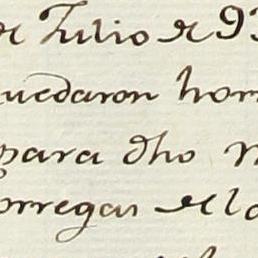 de Julio de 93
quedaron hom
para dho n
orregas de lo